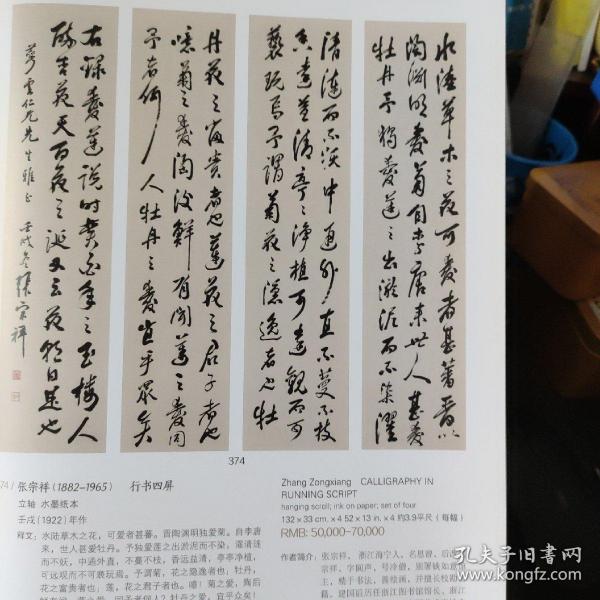 水陆草木之花可爱者甚蕃晋以
陶渊明爱菊自李唐来世人甚爱
牡丹予独爱莲之出淤泥而不染濯
清涟而不妖中通外直不蔓不枝
香远益清亭亭净植可远观而不可
亵玩焉予谓菊花之隐逸者也牡
丹花之富贵者也莲花之君子者也
噫菊之爱陶后鲜有闻莲之爱同
予者何人牡丹之爱宜乎众矣
右录爱莲说时
人
花天百花之
又云花
日是也
云仁兄先生雅正 壬戌冬 张宗祥
374
74 / 张宗祥 (1882–1965) 行书四屏
立轴 水墨纸本
壬戌 (1922) 年作
释文：水陆草木之花，可爱者甚蕃。晋陶渊明独爱菊。自李唐
来，世人甚爱牡丹。予独爱莲之出淤泥而不染，濯清涟
而不妖，中通外直，不蔓不枝，香远益清，亭亭净植，
可远观而不可亵玩焉。予谓菊，花之隐逸者也；牡丹，
花之富贵者也；莲，花之君子者也。噫！菊之爱，陶后
Zhang Zongxiang CALLIGRAPHY IN
RUNNING SCRIPT
hanging scroll; ink on paper; set of four
132 × 33 cm. × 4 52 × 13 in. × 4 约3.9平尺（每幅）
RMB: 50,000–70,000
作者简介：张宗祥，浙江海宁人，名思曾，后
祥，字阆声，号冷僧，别署铁如意
主，精于书法，善绘画，并擅长校
籍。建国后历任浙江图书馆馆长，浙江
孔夫子旧书网